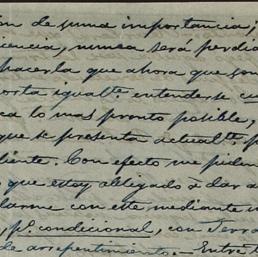 on de suma importancia;
ciencia, nunca será perdid
hacerla que ahora que son
orta igualte. entenderse cu
ea lo mas pronto posible,
que se presenta actualte. p
diente. Con efecto me piden
que estoy obligado á dar a
larme con este mediante u
, po. condicional, con Terra
de arrepentimiento. — Entre t